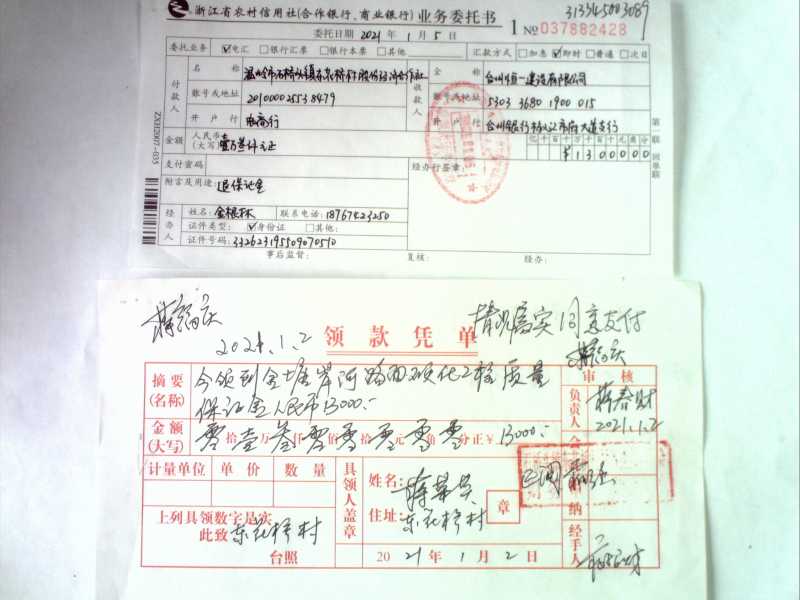 浙江省农村信用社(合作银行、商业银行)业务委托书
313345003089
1 No 037882428
委托日期 2021 年 1 月 5 日
委托业务 ☑电汇 □银行汇票 □银行本票 □其他 汇款方式 □加急 ☑即时 □普通 □次日
付款人 名称 收款人 全称 台州恒一建设有限公司
账号或地址 201000025538479 账号或地址 5303 3680 1900 015
开户行 电商行 开户行
金额 人民币(大写) 壹万叁仟元正 亿千百十万千百十元角分
¥1300000
支付密码 经办行签章:
附言及用途: 退保证金
经办人 姓名: 金根林 联系电话: 18767423250
证件类型: ☑身份证 □其他:
证件号码: 332623195509070510
事后监督: 复核: 经办:
第一联 回单联
ZXH2007-035
情况属实 同意支付
2021.1.2
领款凭单
摘要(名称) 今领到金塘岸河路面硬化工程质量
保证金人民币13000:-
审核
负责人 蒋春财
2021.1.2
金额(大写) 零拾壹万叁仟零佰零拾零元零角零分正 ¥ 13000:-
计量单位 单价 数量
具领人盖章
姓名:
住址:
章
上列具领数字是实
此致
台照
2021年1月2日
经手人